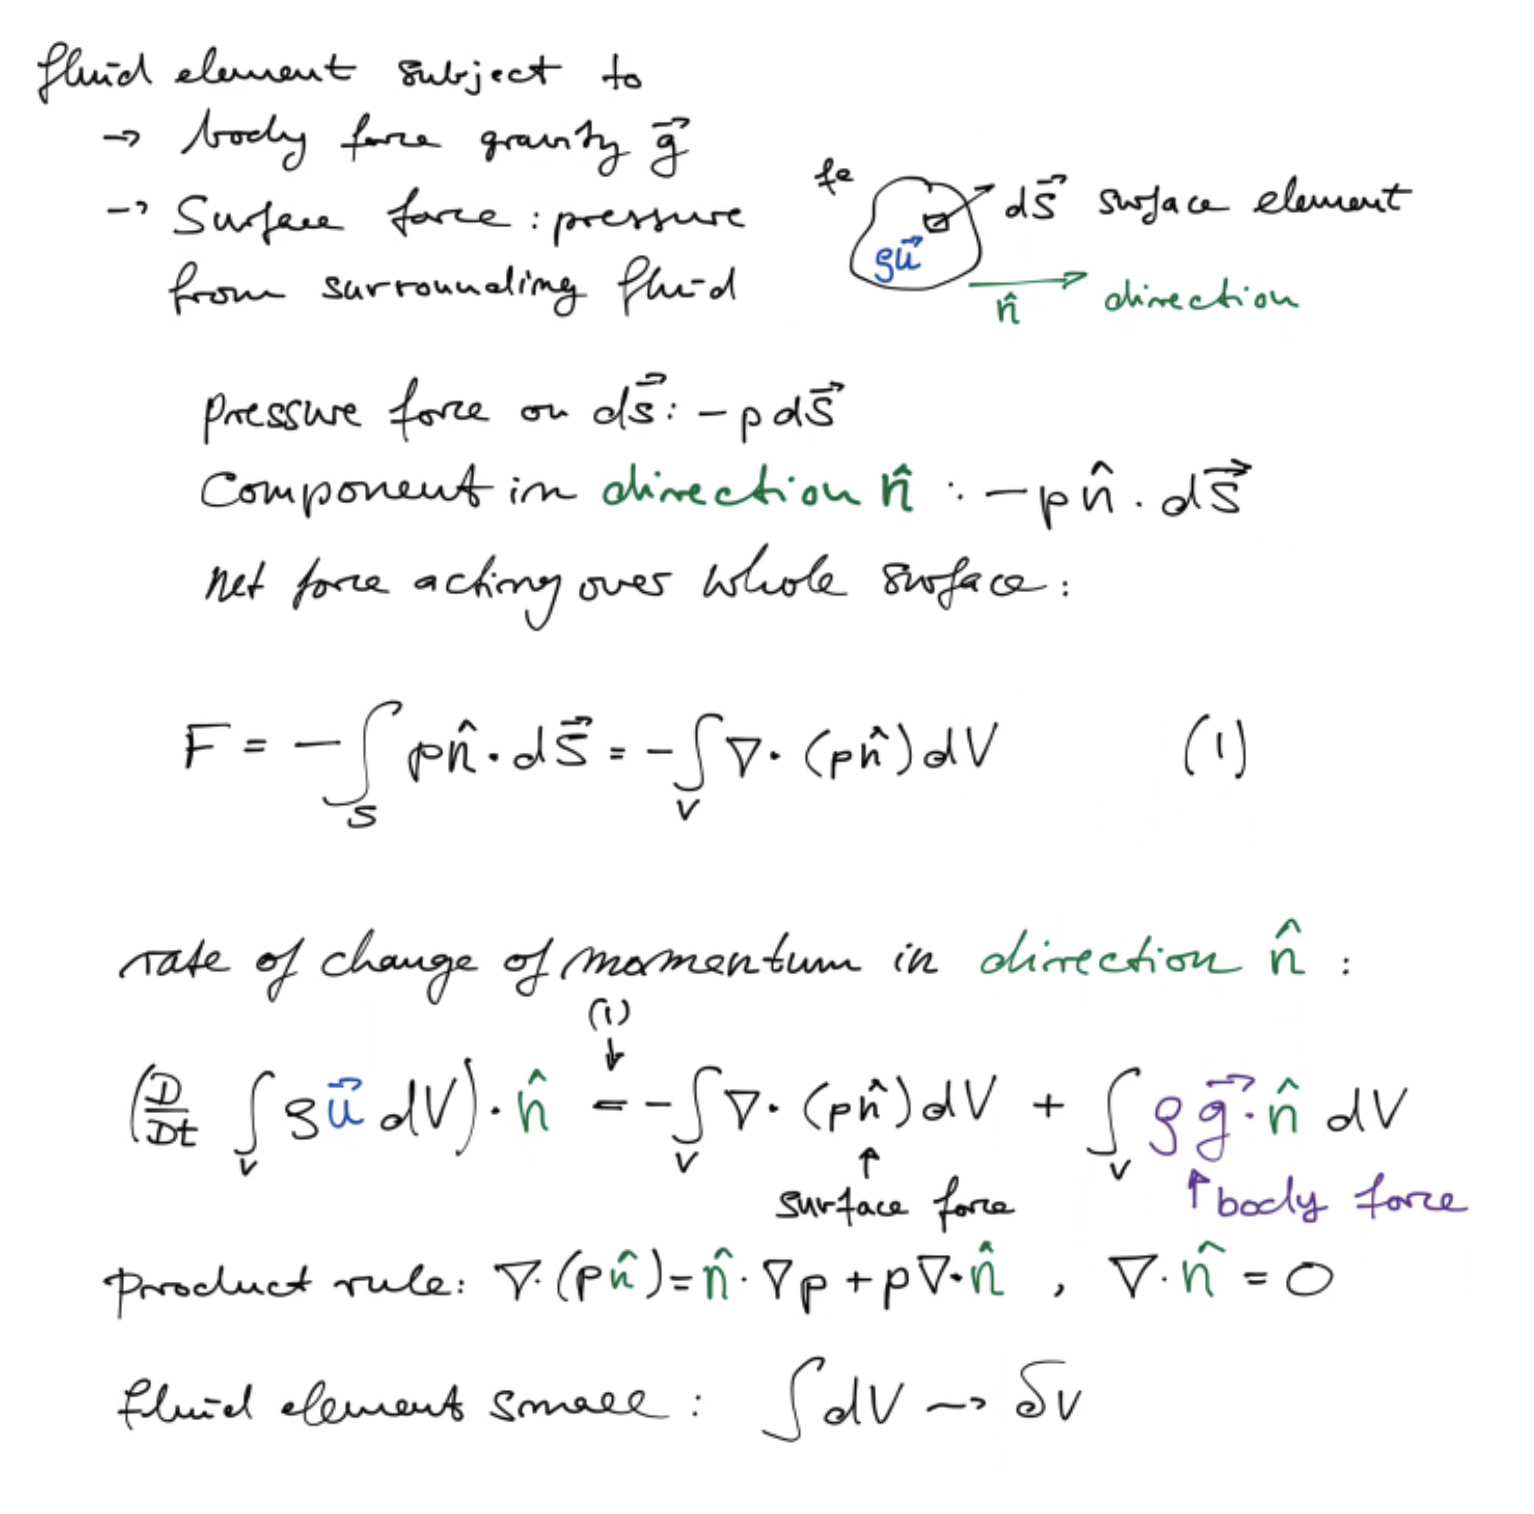 fluid element subject to
→ body force gravity g⃗
→ Surface force: pressure
from surrounding fluid
fe
dS⃗ surface element
ρu⃗
n̂ direction
pressure force on dS⃗: −p dS⃗
Component in direction n̂ : −p n̂ · dS⃗
net force acting over whole surface:
F = − ∫_S p n̂ · dS⃗ = − ∫_V ∇ · (p n̂) dV (1)
rate of change of momentum in direction n̂ :
(1)
↓
(D/Dt ∫_V ρ u⃗ dV) · n̂ = − ∫_V ∇ · (p n̂) dV + ∫_V ρ g⃗ · n̂ dV
↑ ↑ body force
surface force
product rule: ∇ · (p n̂) = n̂ · ∇p + p ∇ · n̂ , ∇ · n̂ = 0
fluid element small : ∫ dV → δV